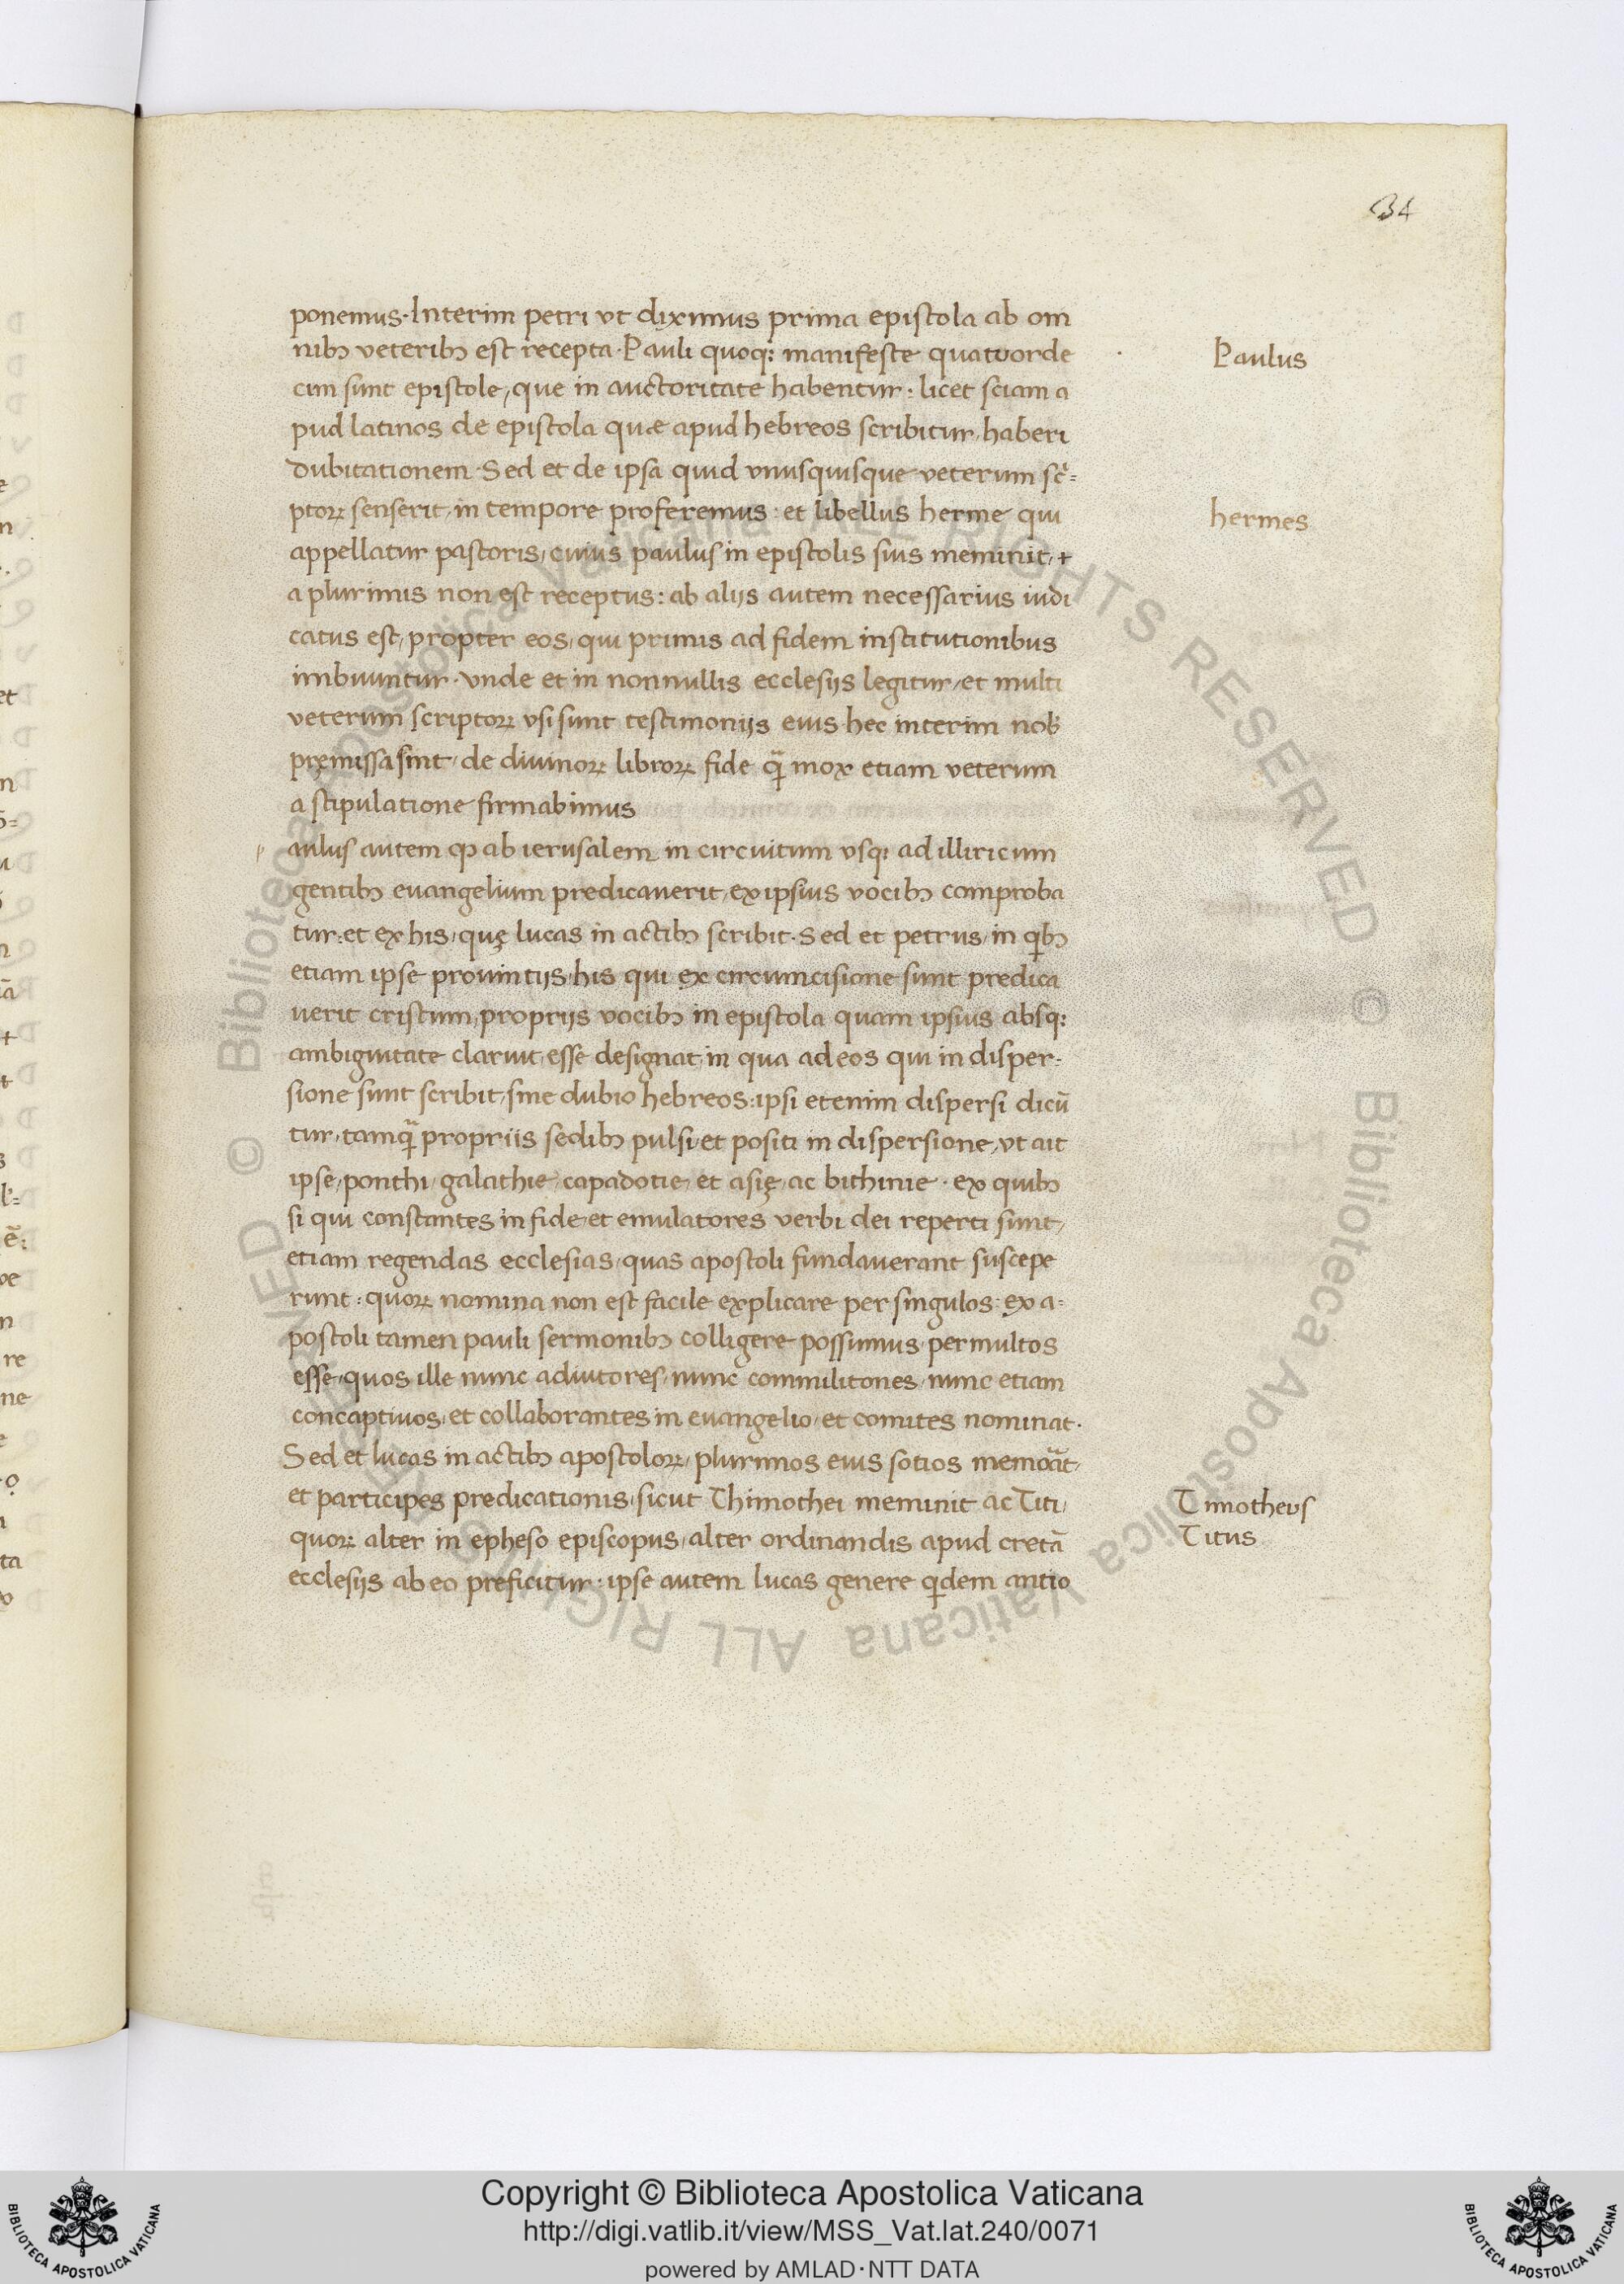 34
ponemus· Interim petri vt diximus prima epistola ab om
nibꝫ veteribꝫ est recepta· Pauli quoqꝫ manifeste quatuorde
cim sunt epistole, que in auctoritate habentur: licet sciam a
pud latinos de epistola quæ apud hebreos scribitur, haberi
dubitationem· Sed et de ipsa quid vnusquisque veterum sc̃=
ptorꝝ senserit, in tempore proferemus: et libellus herme qui
appellatur pastoris, cuius paulus in epistolis suis meminit, +
a plurimis non est receptus: ab alijs autem necessarius iudi
catus est, propter eos, qui primis ad fidem institutionibus
imbuuntur· vnde et in nonnullis ecclesijs legitur, et multi
veterum scriptorꝝ vsi sunt testimonijs eius· hec interim nob̃
pręmissa sint, de diuinorꝝ librorꝝ fide q̃ mox etiam veterum
a stipulatione firmabimus
p aulus autem ꝙ ab ierusalem in circuitum vsqꝫ ad illiricum
gentibꝫ euangelium predicauerit, ex ipsius vocibꝫ comproba
tur: et ex his, quę lucas in actibꝫ scribit· Sed et petrus, in qͥbꝫ
etiam ipse prouintijs, his qui ex circumcisione sunt predica
uerit cristum, proprijs vocibꝫ in epistola quam ipsius absqꝫ
ambiguitate claruit, esse designat, in qua ad eos qui in disper=
sione sunt scribit, sine dubio hebreos: ipsi etenim dispersi dicū
tur, tamq̃ propriis sedibꝫ pulsi, et positi in dispersione, vt ait
ipse, ponthi, galathie, capadotie, et asię, ac bithinie· ex quibꝫ
si qui constantes in fide, et emulatores verbi dei reperti sunt,
etiam regendas ecclesias, quas apostoli fundauerant suscepe
runt: quorꝝ nomina non est facile explicare per singulos: ex a=
postoli tamen pauli sermonibꝫ colligere possumus, permultos
esse, quos ille nunc adiutores, nunc commilitones, nunc etiam
concaptiuos, et collaborantes in euangelio, et comites nominat·
Sed et lucas in actibꝫ apostolorꝝ, plurimos eius sotios memorat,
et participes predicationis, sicut Thimothei meminit ac Titi,
quorꝝ alter in epheso episcopus, alter ordinandis apud cretā
ecclesijs ab eo preficitur: ipse autem lucas genere qͥdem antio
Paulus
hermes
Timotheus
Titus
© Biblioteca Apostolica Vaticana ALL RIGHTS RESERVED © Biblioteca Apostolica Vaticana ALL RIGHTS RESERVED
Copyright © Biblioteca Apostolica Vaticana
http://digi.vatlib.it/view/MSS_Vat.lat.240/0071
powered by AMLAD·NTT DATA
BIBLIOTECA APOSTOLICA VATICANA
BIBLIOTECA APOSTOLICA VATICANA